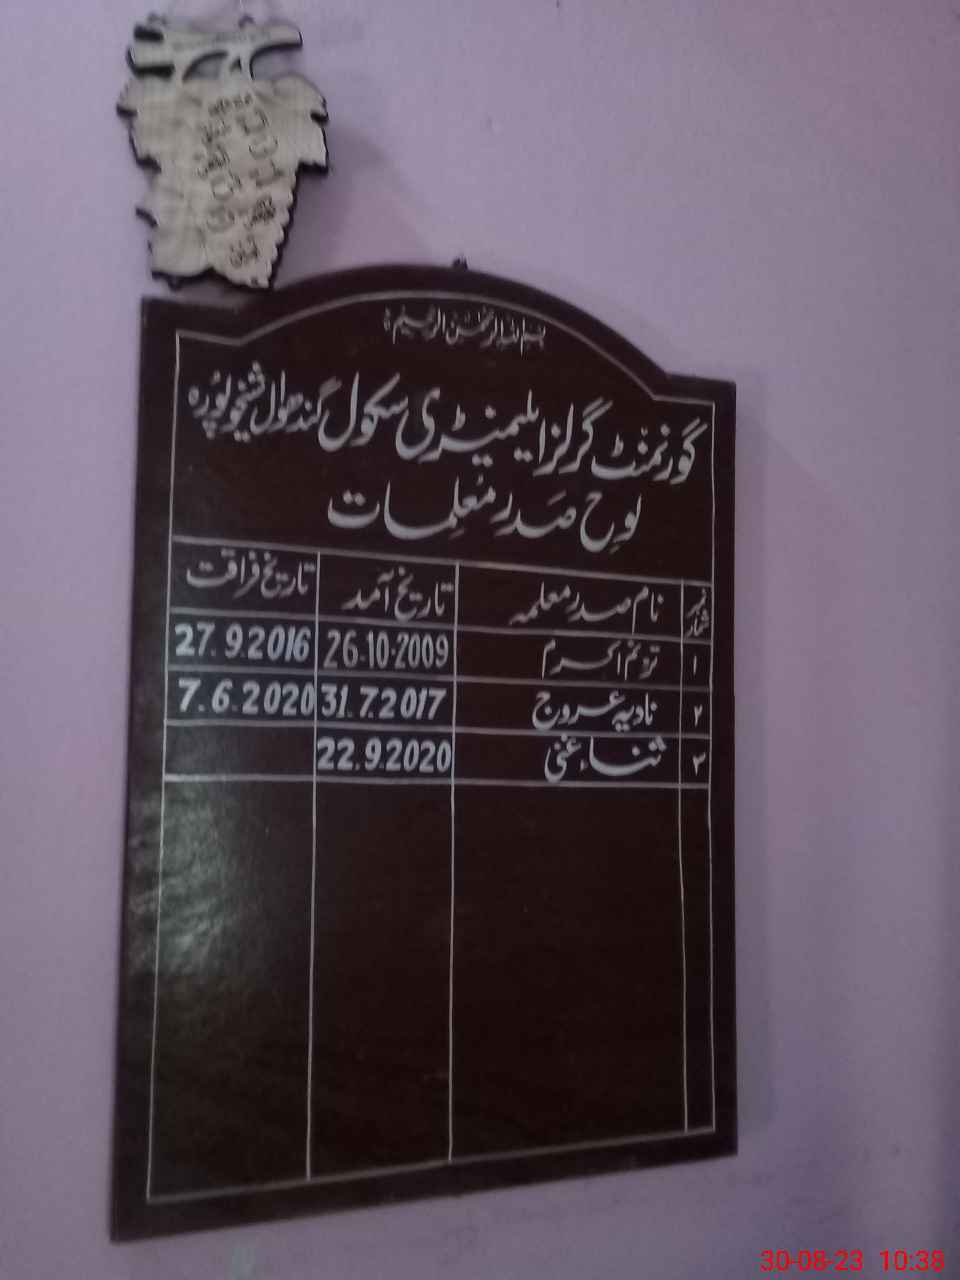 بسم اللہ الرحمٰن الرحیم
گورنمنٹ گرلز ایلیمنٹری سکول گندھواں شیخوپورہ
لوحِ صَدر مُعلِمات
نمبر شمار نام صدر معلمہ تاریخ آمد تاریخ فراقت
۱ ترنم اکرم 26.10.2009 27.9.2016
۲ نادیہ عروج 31.7.2017 7.6.2020
۳ ثناء غنی 22.9.2020
30-08-23 10:38